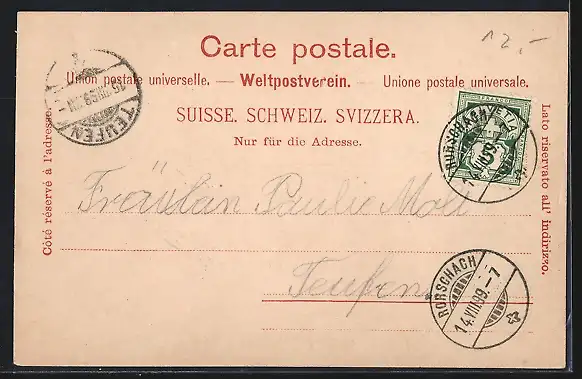 12,-
Carte postale.
Union postale universelle. — Weltpostverein. — Unione postale universale.
SUISSE. SCHWEIZ. SVIZZERA.
Nur für die Adresse.
Côté réservé à l'adresse.
Lato riservato all' indirizzo.
TEUFEN
15.VIII.99
FRANCO
HELVETIA
RORSCHACH
VIII.99.
Fräulein Paulie Moll
Teufen
RORSCHACH
14.VIII.99.-7